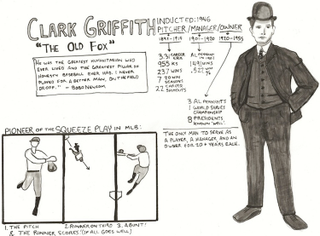 CLARK GRIFFITH
"THE OLD FOX"
INDUCTED: 1946
PITCHER/MANAGER/OWNER
1891-1914 1901-1920 1920-1955
"HE WAS THE GREATEST HUMANITARIAN WHO
EVER LIVED AND THE GREATEST PILLAR OF
HONESTY BASEBALL EVER HAD. I NEVER
PLAYED FOR A BETTER MAN, ON THE FIELD
OR OFF." - BOBO NEWSOM
3.31 CAREER
ERA
955 KS
237 WINS
1491 WINS
.522
PIONEER OF THE SQUEEZE PLAY IN MLB:
1. THE PITCH 2. RUNNER ON THIRD 3. A BUNT!
& THE RUNNER SCORES! (IF ALL GOES WELL)
3 AL PENNANTS
1 WORLD SERIES
CHAMPIONSHIP
8 PRESIDENTS
THE ONLY MAN TO SERVE AS
A PLAYER, A MANAGER, AND AN
OWNER FOR 20+ YEARS EACH.